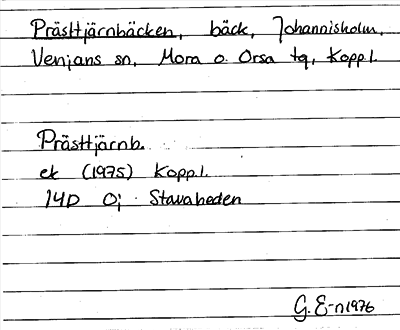 Prästtjärnbäcken, bäck, Johannisholm,
Venjans sn, Mora o. Orsa tg, Koppl.
Prästtjärnb.
ek (1975) Koppl.
14D 0j Stavaheden
G. E-n 1976